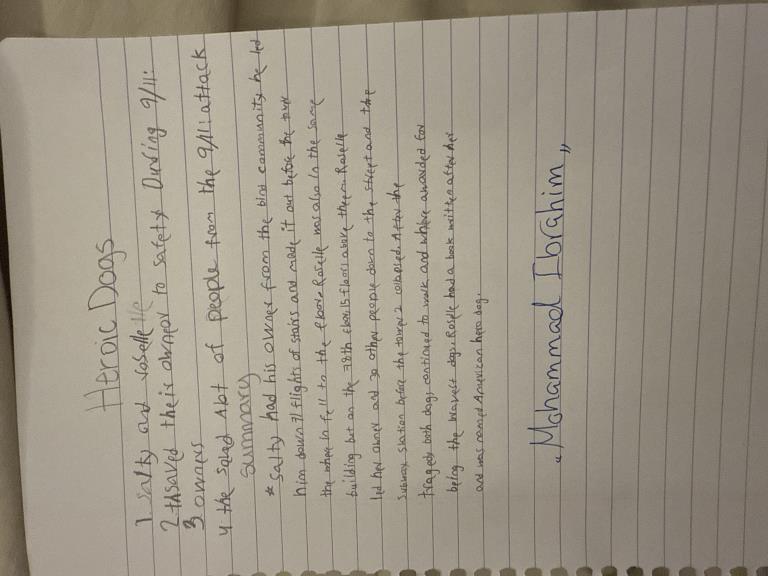 Heroic Dogs
1 salty and roselle
2 thsaved their owner to safety During 9/11:
3 owners
4 the saved Abt of people from the 9/11: attack
summary
* salty had his owner from the bind community he led
him down 71 flights of stairs and made it out before the tower
the when in fell to the floor. Roselle was also in the same
building but on the 78th floor 15 floors above them. Roselle
led her owner and 30 other people down to the street and the
subway station before the tower 2 collapsed. After the
tragedy both dogs continued to walk and where awarded for
being the bravest dogs. Roselle had a book written after her
and was named American hero dog.
"Mohammad Ibrahim"